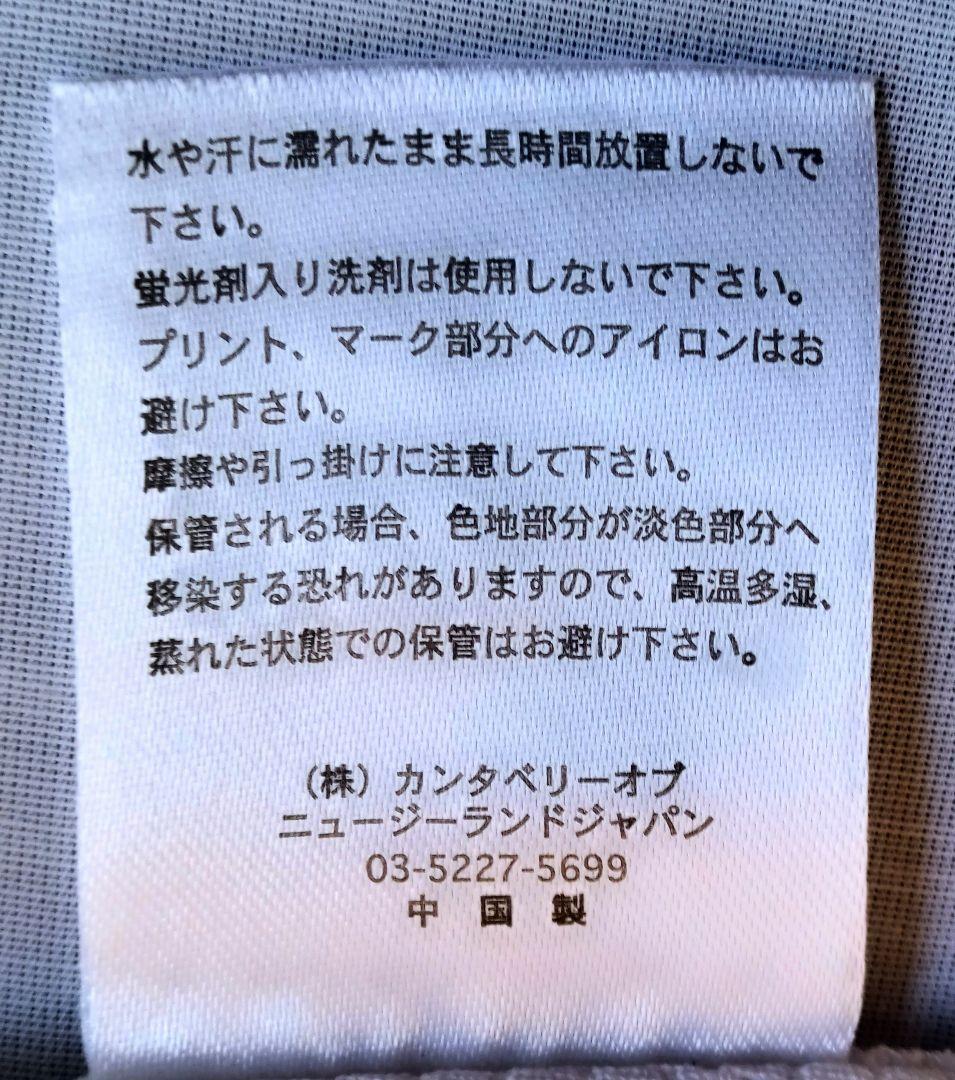 水や汗に濡れたまま長時間放置しないで
下さい。
蛍光剤入り洗剤は使用しないで下さい。
プリント、マーク部分へのアイロンはお
避け下さい。
摩擦や引っ掛けに注意して下さい。
保管される場合、色地部分が淡色部分へ
移染する恐れがありますので、高温多湿、
蒸れた状態での保管はお避け下さい。
（株）カンタベリーオブ
ニュージーランドジャパン
03-5227-5699
中 国 製